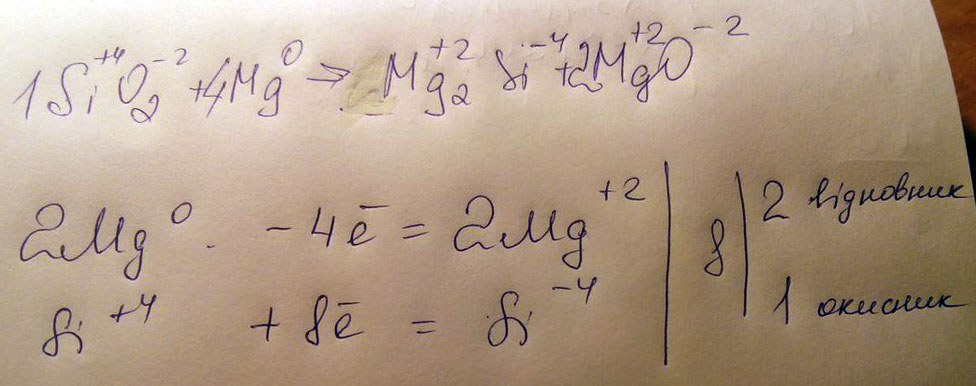 1Si⁺⁴O₂⁻² + 4Mg⁰ → Mg₂⁺²Si⁻⁴ + 2Mg⁺²O⁻²
2Mg⁰ - 4ē = 2Mg⁺² | 8 | 2 відновник
Si⁺⁴ + 8ē = Si⁻⁴ | | 1 окисник